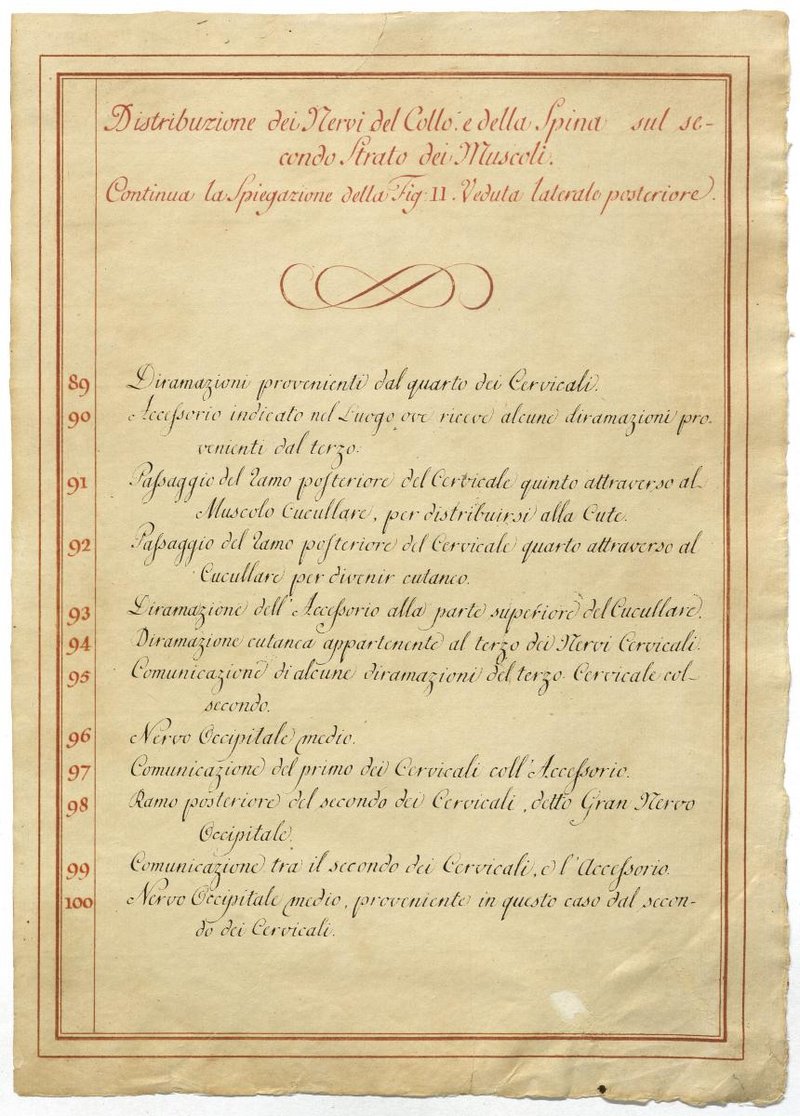 Distribuzione dei Nervi del Collo e della Spina sul se-
condo Strato dei Muscoli.
Continua la Spiegazione della Fig: II. Veduta laterale posteriore.
89 Diramazioni provenienti dal quarto dei Cervicali.
90 Accessorio indicato nel Luogo ove riceve alcune diramazioni pro-
venienti dal terzo.
91 Passaggio del Ramo posteriore del Cervicale quinto attraverso al
Muscolo Cucullare, per distribuirsi alla Cute.
92 Passaggio del Ramo posteriore del Cervicale quarto attraverso al
Cucullare per divenir cutaneo.
93 Diramazione dell'Accessorio alla parte superiore del Cucullare.
94 Diramazione cutanea appartenente al terzo dei Nervi Cervicali.
95 Comunicazione di alcune diramazioni del terzo Cervicale col
secondo.
96 Nervo Occipitale medio.
97 Comunicazione del primo dei Cervicali coll'Accessorio.
98 Ramo posteriore del secondo dei Cervicali, detto Gran Nervo
Occipitale.
99 Comunicazione tra il secondo dei Cervicali, e l'Accessorio.
100 Nervo Occipitale medio, proveniente in questo caso dal secon-
do dei Cervicali.